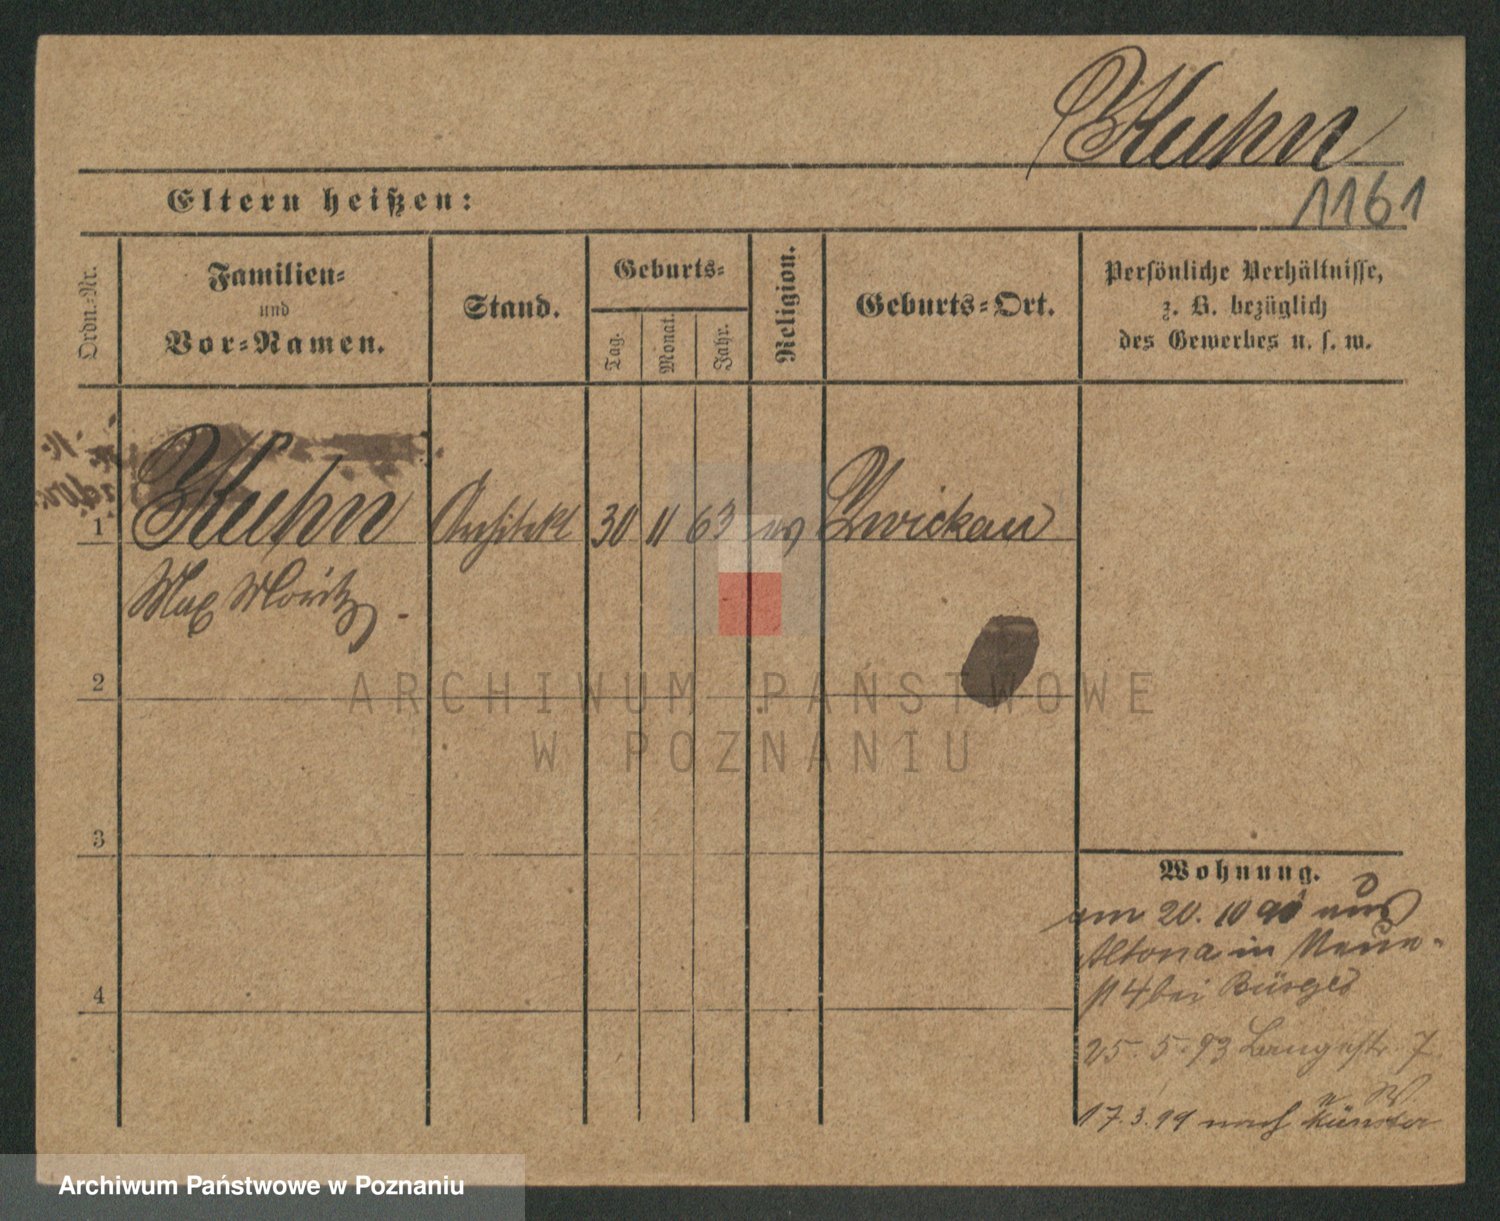 Kuhn
1161
Eltern heißen:
Ordn.-Nr.
Familien-
und
Vor-Namen.
Stand.
Geburts-
Tag.
Monat.
Jahr.
Religion.
Geburts-Ort.
Persönliche Verhältnisse,
z. B. bezüglich
des Gewerbes u. s. w.
1 Kuhn Architekt 30 11 63 ev Zwickau
Max Moritz
2
ARCHIWUM PAŃSTWOWE
W POZNANIU
3
Wohnung.
am 20. 10 90 aus
Altona in Neue-
st 4 bei
4
25. 5. 93 Langestr 7
17. 3. 99 nach
Archiwum Państwowe w Poznaniu